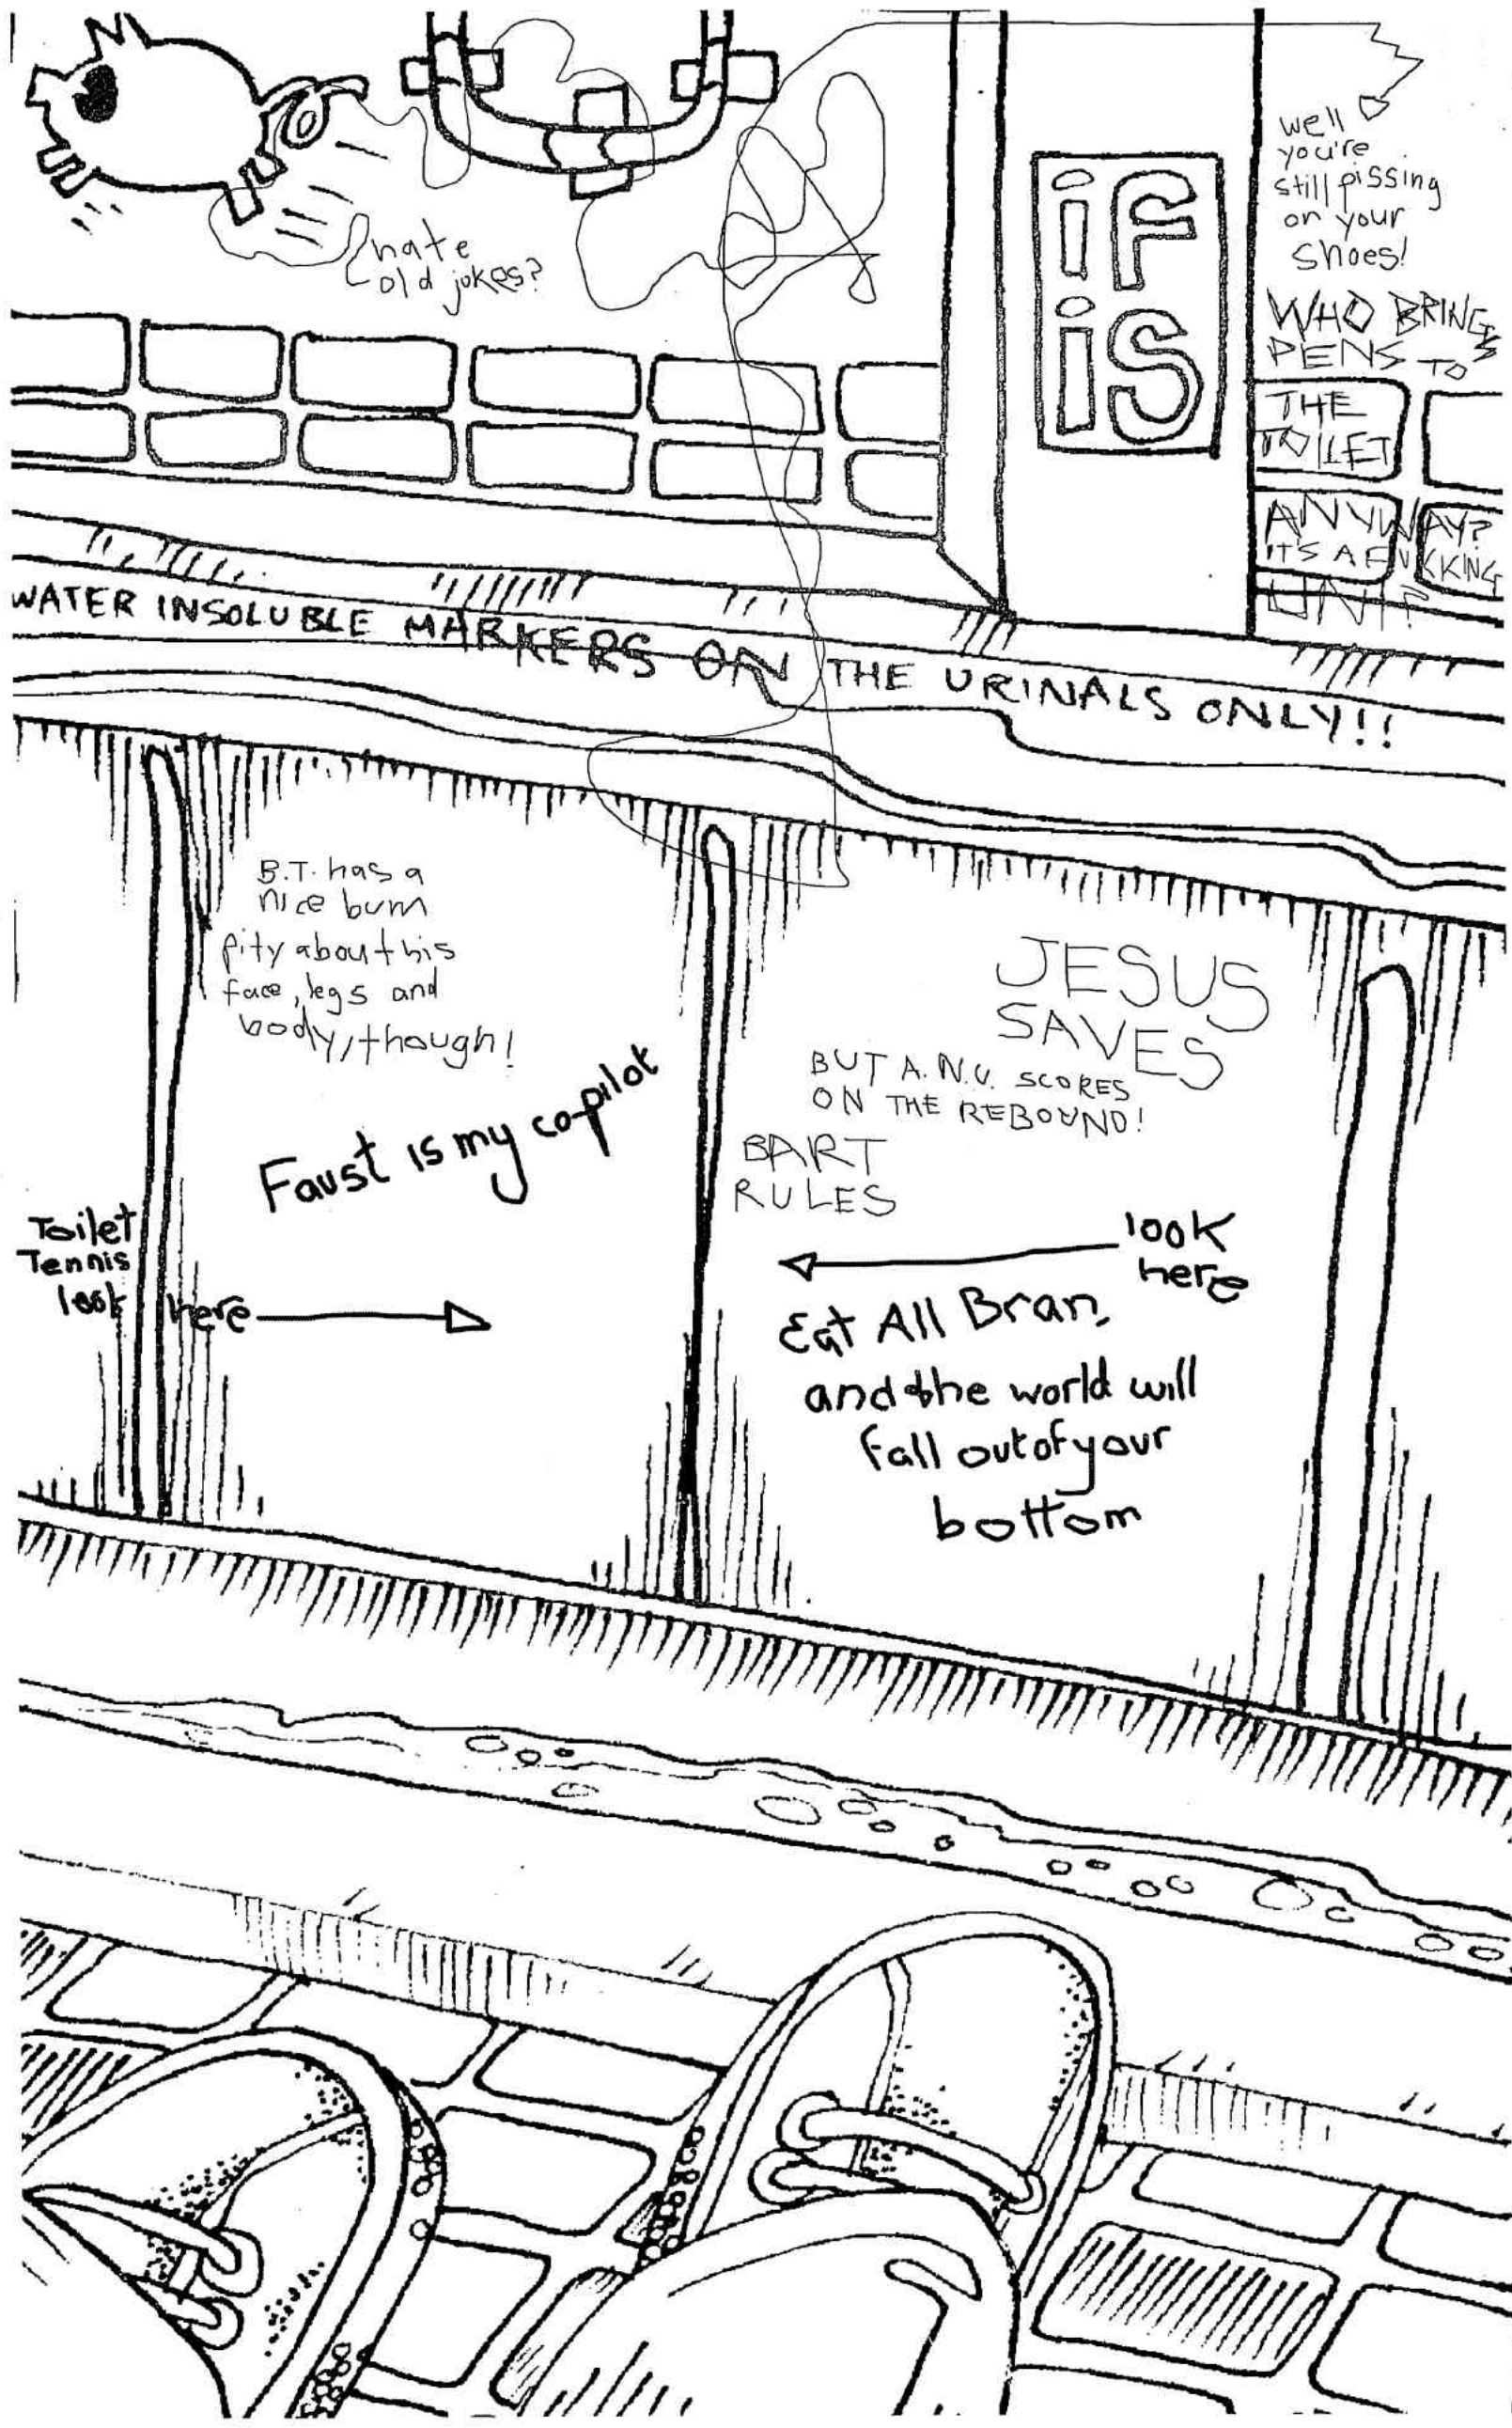 hate
old jokes?
iF
iS
well
you're
still pissing
on your
shoes!
WHO BRINGS
PENS TO
THE
TOILET
ANYWAY?
IT'S A FUCKING
UNI?
WATER INSOLUBLE MARKERS ON THE URINALS ONLY!!
B.T. has a
nice bum
pity about his
face, legs and
body, though!
Faust is my co-pilot
Toilet
Tennis
look here
JESUS
SAVES
BUT A.N.U. SCORES
ON THE REBOUND!
BART
RULES
look
here
Eat All Bran,
and the world will
fall out of your
bottom